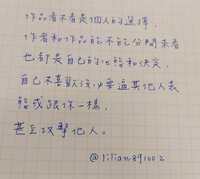 作品看不看是個人的選擇,
作者和作品能不能分開來看
也都是自己的體驗和決定,
自己不喜歡沒必要逼其他人表
態或跟你一樣,
甚至攻擊他人。
@lilian891002